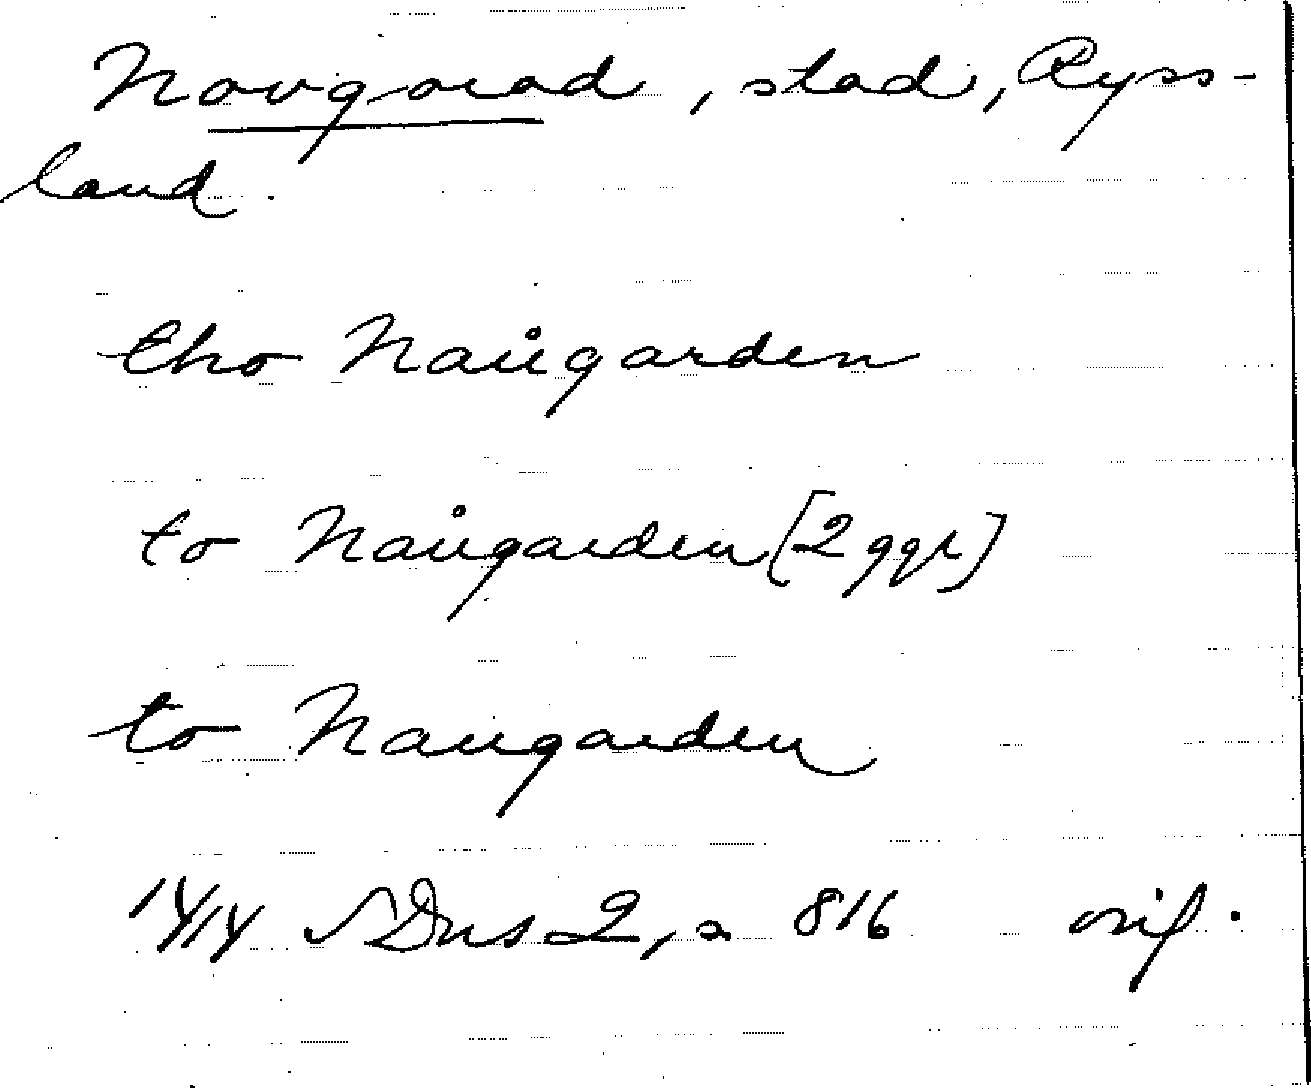 Novgorod, stad, Ryss-
land.
tho Naůgarden
to Naůgarden [2 ggr]
to Naugarden
1414 SDns 2, s 816 orig.